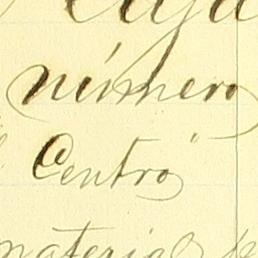 número
Centro"
material